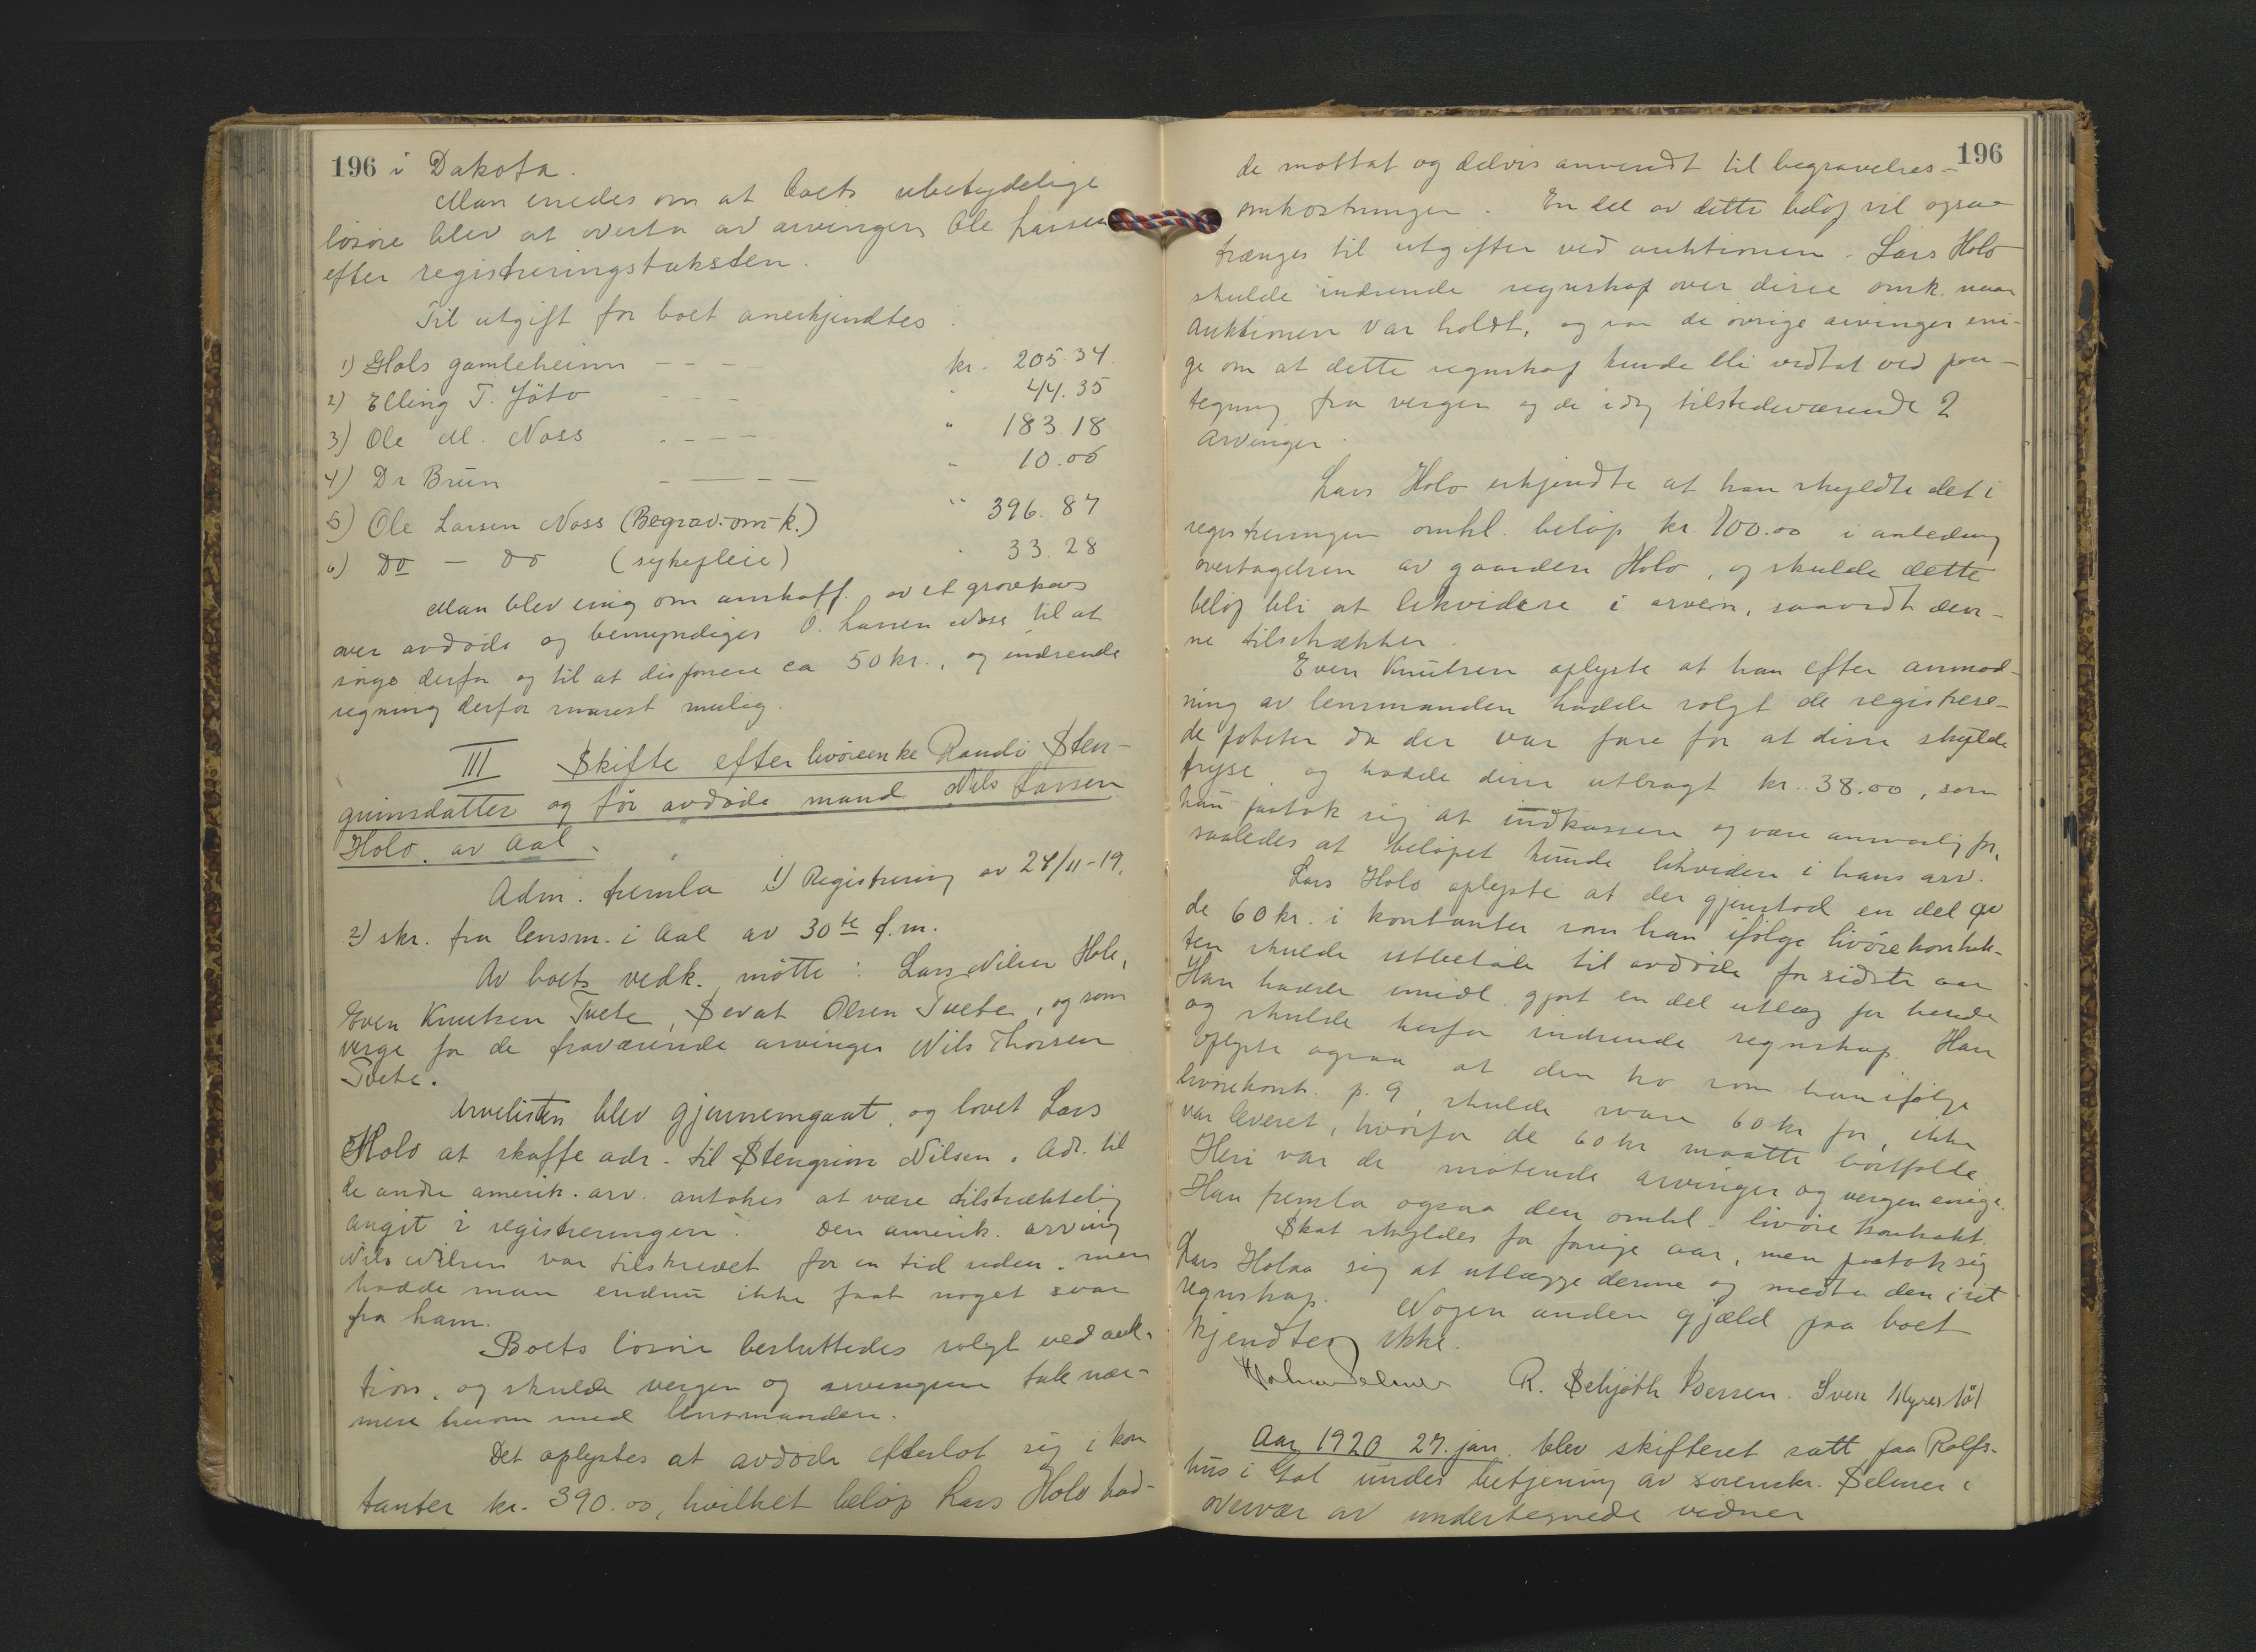 196 i Dakota.
Man enedes om at boets ubetydelige
løsøre blev at overta av arvingen Ole Larsen
efter registreringstaksten.
Til utgift for boet anerkjendtes:
1) Hols gamleheim - - - - kr. 205.34.
2) Elling T. Jöto - - - " 44.35
3) Ole M. Noss - - - - " 183.18
4) Dr Brun - - - - " 10.00
5) Ole Larsen Noss (Begrav.-omk.) " 396.87
6) Do - Do (sykepleie) " 33.28
Man blev enig om anskaff. av et gravkors
over avdøde og bemyndiges O. Larsen Noss til at
sørge derfor og til at disponere ca 50 kr., og indsende
regning derfor snarest mulig.
III Skifte efter livöreenke Randi Sten-
grimsdatter og før avdøde mand Nils Larsen
Holo av Aal.
Adm. fremla 1) Registrering av 24/11-19.
2) skr. fra lensm. i Aal av 30te f.m.
Av boets vedk. møtte: Lars Nilsen Holo,
Even Knutsen Tvete, Sevat Olsen Tvete, og som
verge for de fraværende arvinger Nils Thorsen
Tvete.
Arvelisten blev gjennemgaat, og lovet Lars
Holo at skaffe adr. til Stengrim Nilsen. Adr. til
de andre amerik. arv. antokes at være tilstrækkelig
angit i registreringen. Den amerik. arving
Nils Nilsen var tilskrevet for en tid siden, men
hadde man endnu ikke faat noget svar
fra ham.
Boets løsøre besluttedes solgt ved auk-
tion, og skulde vergen og arvingene tale nær-
mere herom med lensmanden.
Det oplystes at avdøde efterlot sig i kon
tanter kr. 390.00, hvilket beløp Lars Holo had-
196
de mottat og delvis anvendt til begravelses-
omkostninger. En del av dette beløp vil ogsaa
trænges til utgifter ved auktionen. Lars Holo
skulde indsende regnskap over disse omk. naar
auktionen var holdt, og var de øvrige arvinger eni-
ge om at dette regnskap kunde bli vedtat ved paa-
tegning fra vergen og de idag tilstedeværende 2
arvinger.
Lars Holo erkjendte at han skyldte det i
registreringen omhl. beløp kr. 700.00 i anledning
overtagelsen av gaarden Holo, og skulde dette
beløp bli at likvidere i arven, saavidt den-
ne tilstrækker.
Even Knutsen oplyste at han efter anmod-
ning av lensmanden hadde solgt de registrere-
de poteter da der var fare for at disse skulde
fryse, og hadde disse utbragt kr. 38.00, som
han paatok sig at indkassere og være ansvarlig for,
saaledes at beløpet kunde likvideres i hans arv.
Lars Holo oplyste at der gjenstod en del av
de 60 kr. i kontanter som han ifølge livørekontrak-
ten skulde utbetale til avdøde for sidste aar.
Han hadde imidl. gjort en del utlæg for hende
og skulde herfor indsende regnskap. Han
oplyste ogsaa at den ko som han ifølge
livørekontr. p. 9, skulde svare 60 kr for, ikke
var leveret, hvorfor de 60 kr maatte bortfalde.
Heri var de møtende arvinger og vergen enige.
Han fremla ogsaa den omhl. livøre kontrakt.
Skat skyldes for forrige aar, men paatok sig
Lars Holo sig at utlægge denne og medta den i sit
regnskap. Nogen anden gjæld paa boet
kjendtes ikke.
R. Schjøth Iversen. Sven Myrestøl
Aar 1920 27. jan. blev skifteret satt paa Rolfs-
hus i Gol under betjening av sorenskr. Selmer i
overvær av undertegnede vidner